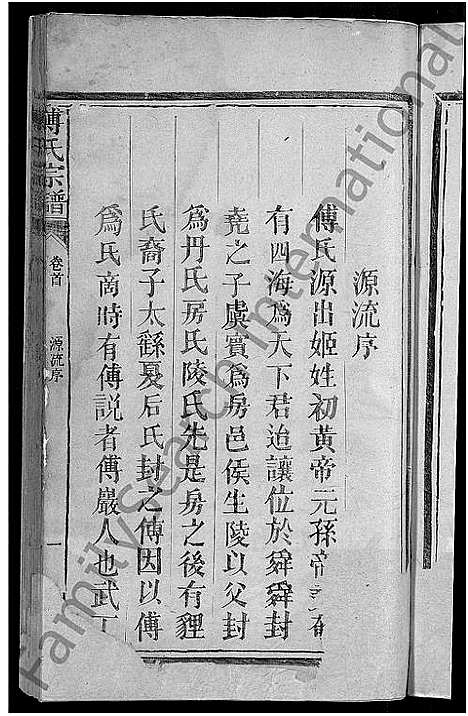 源流序
傅氏源出姬姓初黃帝元孫帝堯奄
有四海為天下君迨讓位於舜舜封
堯之子虞賓為房邑侯生陵以父封
為丹氏房氏陵氏先是房之後有貍
氏裔子太繇夏后氏封之傅因以傅
為氏商時有傅說者傅巖人也武丁
傅氏宗譜
卷首
源流序
一
FamilySearch International